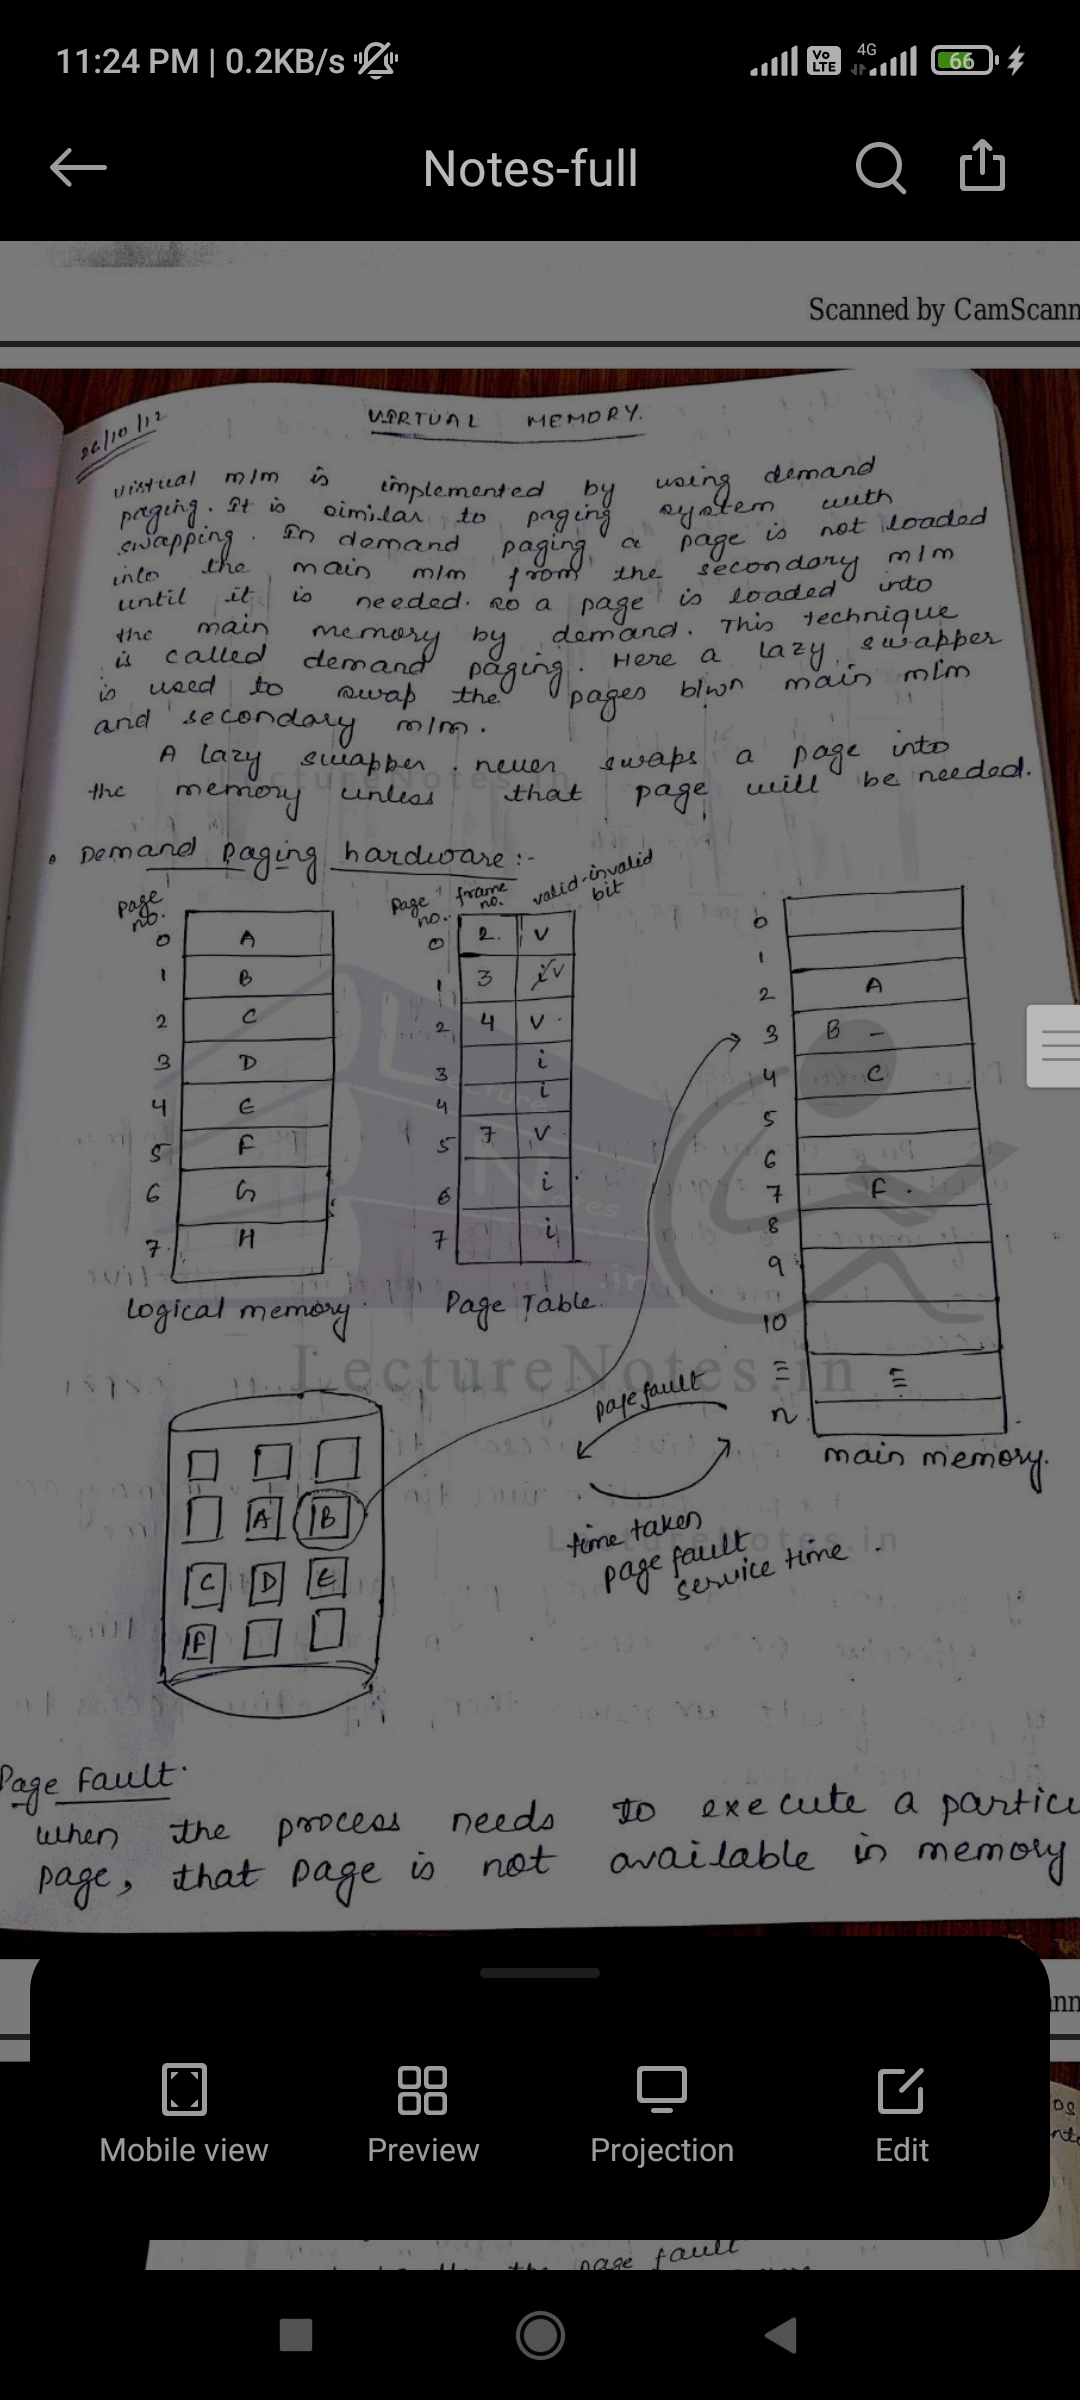 11:24 PM | 0.2KB/s
Vo LTE 4G 66
Notes-full
Scanned by CamScann
26/10/12
VIRTUAL MEMORY.
virtual m/m is implemented by using demand
paging. It is similar to paging system with
swapping. In demand paging a page is not loaded
into the main m/m from the secondary m/m
until it is needed. so a page is loaded into
the main memory by demand. This technique
is called demand paging. Here a lazy swapper
is used to swap the pages b/wn main m/m
and secondary m/m.
A lazy swapper never swaps a page into
the memory unless that page will be needed.
LectureNotes.in
• Demand Paging hardware:-
page no.
0 A
1 B
2 C
3 D
4 E
5 F
6 G
7. H
Logical memory.
Page no. frame no. valid-invalid bit
0 2. v
1 3 i v
2 4 v
3 i
4 i
5 7 v
6 i
7 i
Page Table.
0
1
2 A
3 B -
4 C
5
6
7 F.
8
9
10
n
main memory.
LectureNotes.in
A B
C D E
F
page fault
time taken
page fault
service time.
LectureNotes.in
Page Fault.
when the process needs to execute a particu
page, that page is not available in memory
ann
Mobile view
Preview
Projection
Edit
os
nto
the page fault